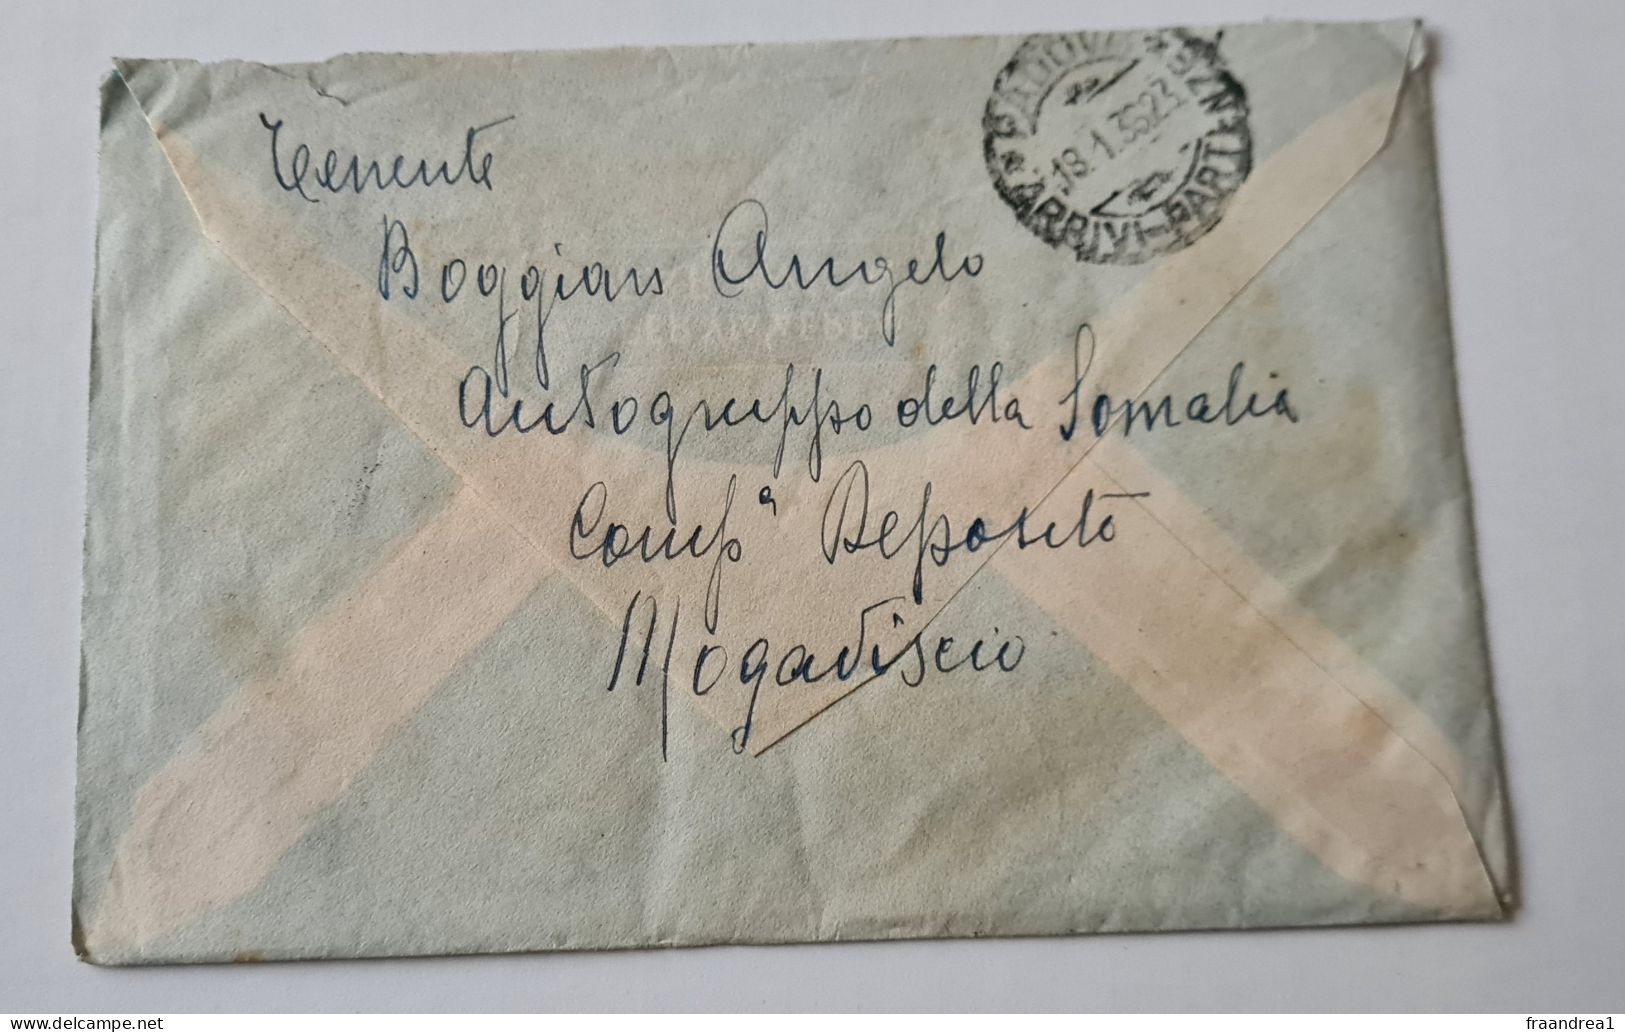 Tenente
Boggian Angelo
Autogruppo della Somalia
Compª Deposito
Mogadiscio
PADOVA
18.1.36 23
ARRIVI-PARTENZE
delcampe.net
fraandrea1